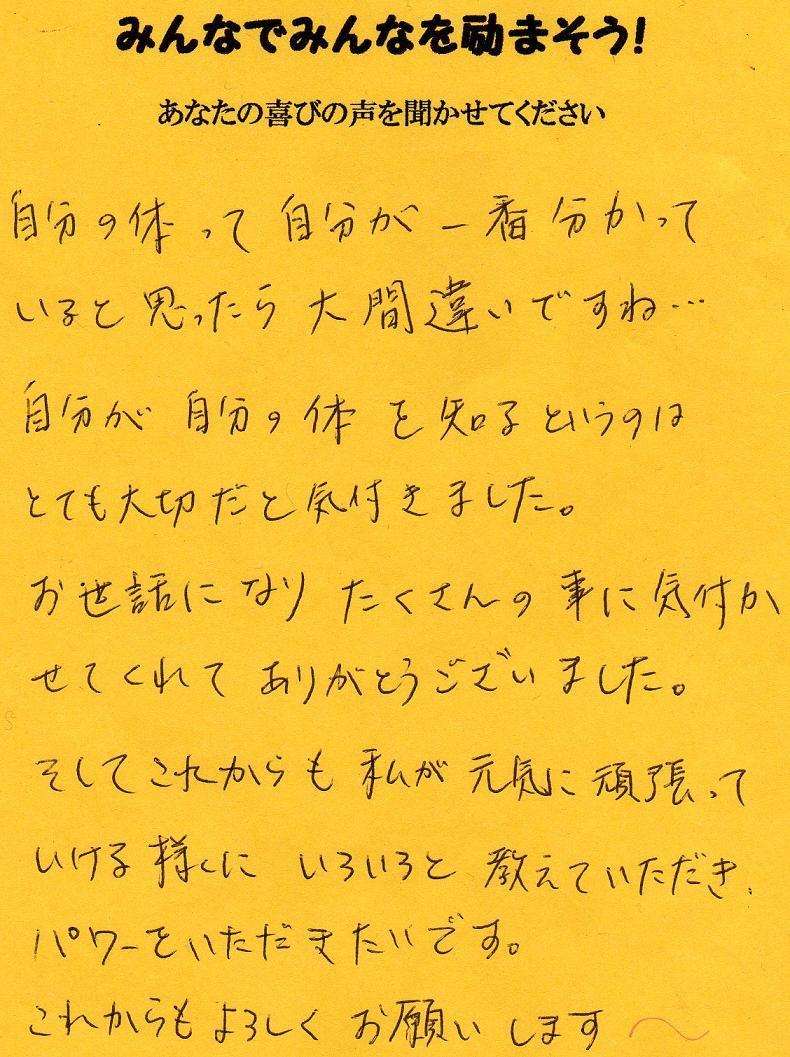 みんなでみんなを励まそう!
あなたの喜びの声を聞かせてください
自分の体って 自分が 一番 分かって
いると 思ったら 大間違いですね…
自分が 自分の体 を 知る というのは
とても大切だと気付きました。
お世話になり たくさんの 事に 気付か
せてくれて ありがとうございました。
そしてこれからも 私が 元気に 頑張って
いける 様に いろいろと 教えていただき、
パワーをいただきたいです。
これからも よろしく お願い します〜